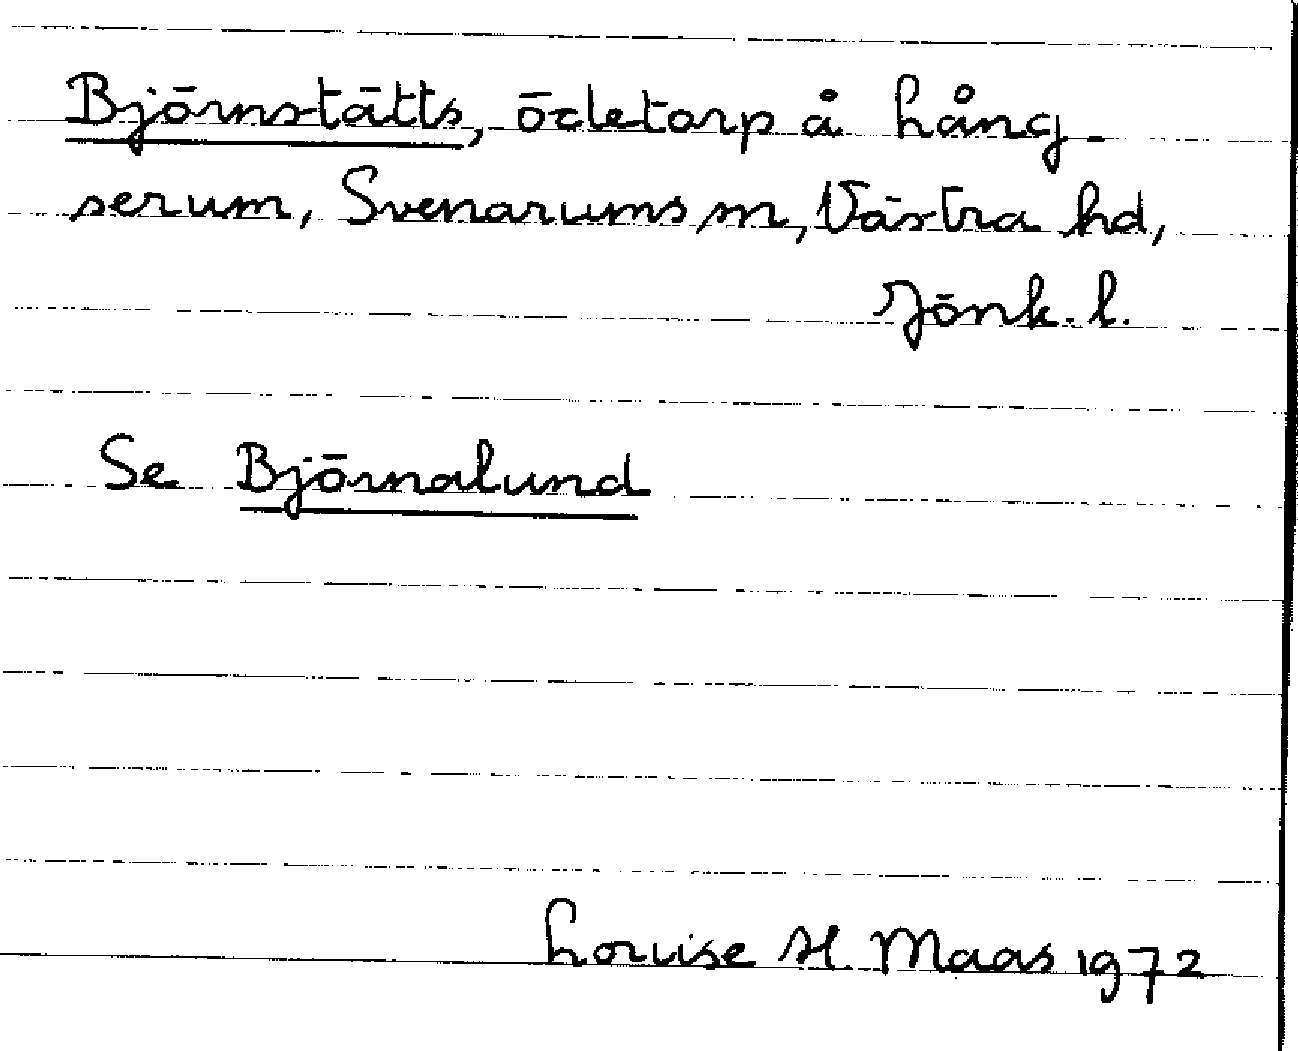 Björnstätts, ödetorp å Lång-
serum, Svenarums sn, Västra hd,
Jönk. l.
Se Björnalund
Louise H. Maas 1972